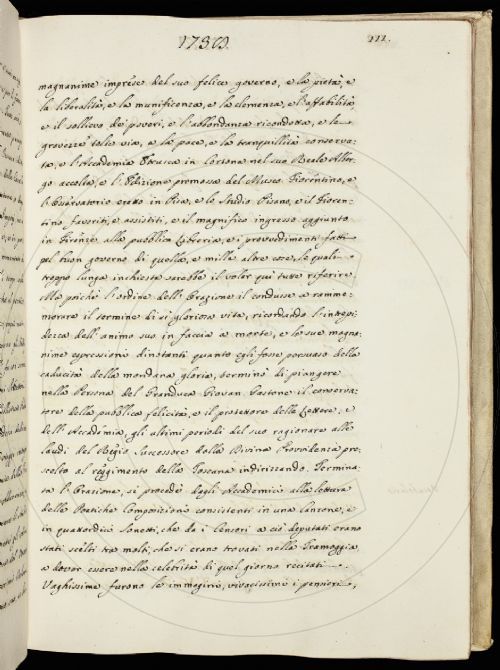 1739.
111.
magnanime imprese del suo felice governo, e la pietà, e
la liberalità, e la munificenza, e la clemenza, e l'affabilità,
e il sollievo de' poveri, e l'abbondanza ricondotta, e le
gravezze tolte via, e la pace, e la tranquillità conserva-
ta, e l'Accademia Etrusca in Cortona nel suo Reale Alber-
go accolta, e l'Edizione promossa del Museo Fiorentino, e
l'Osservatorio eretto in Pisa, e lo Studio Pisano, e il Fioren-
tino favoriti, e assistiti, e il magnifico ingresso aggiunto
in Firenze alla pubblica Libreria, e i provvedimenti fatti
pel buon governo di quella, e mille altre cose, le quali
troppo lunga inchiesta sarebbe il voler quì tutte riferire.
Ma poichè l'ordine dell'Orazione il condusse a ramme-
morare il termine di sì gloriosa vita, ricordando l'intrepi-
dezza dell'animo suo in faccia a morte, e le sue magna-
nime espressioni dinotanti quanto egli fosse persuaso della
caducità della mondana gloria, terminò di piangere
nella Persona del Granduca Giovan Gastone il conserva-
tore della pubblica felicità, e il protettore delle Lettere, e
dell'Accademia, gli ultimi periodi del suo ragionare alle
laudi del Regio Successore dalla Divina Provvidenza pre-
scelto al reggimento della Toscana indirizzando. Termina-
ta l'Orazione, si procedè dagli Accademici alla lettura
delle Poetiche Composizioni consistenti in una Canzone, e
in quattordici Sonetti, che da i Censori a ciò deputati erano
stati scelti tra molti, che si erano trovati nella Tramoggia
a dover essere nella celebrità di quel giorno recitati.
Vaghissime furono le immagini, vivacissimi i pensieri,